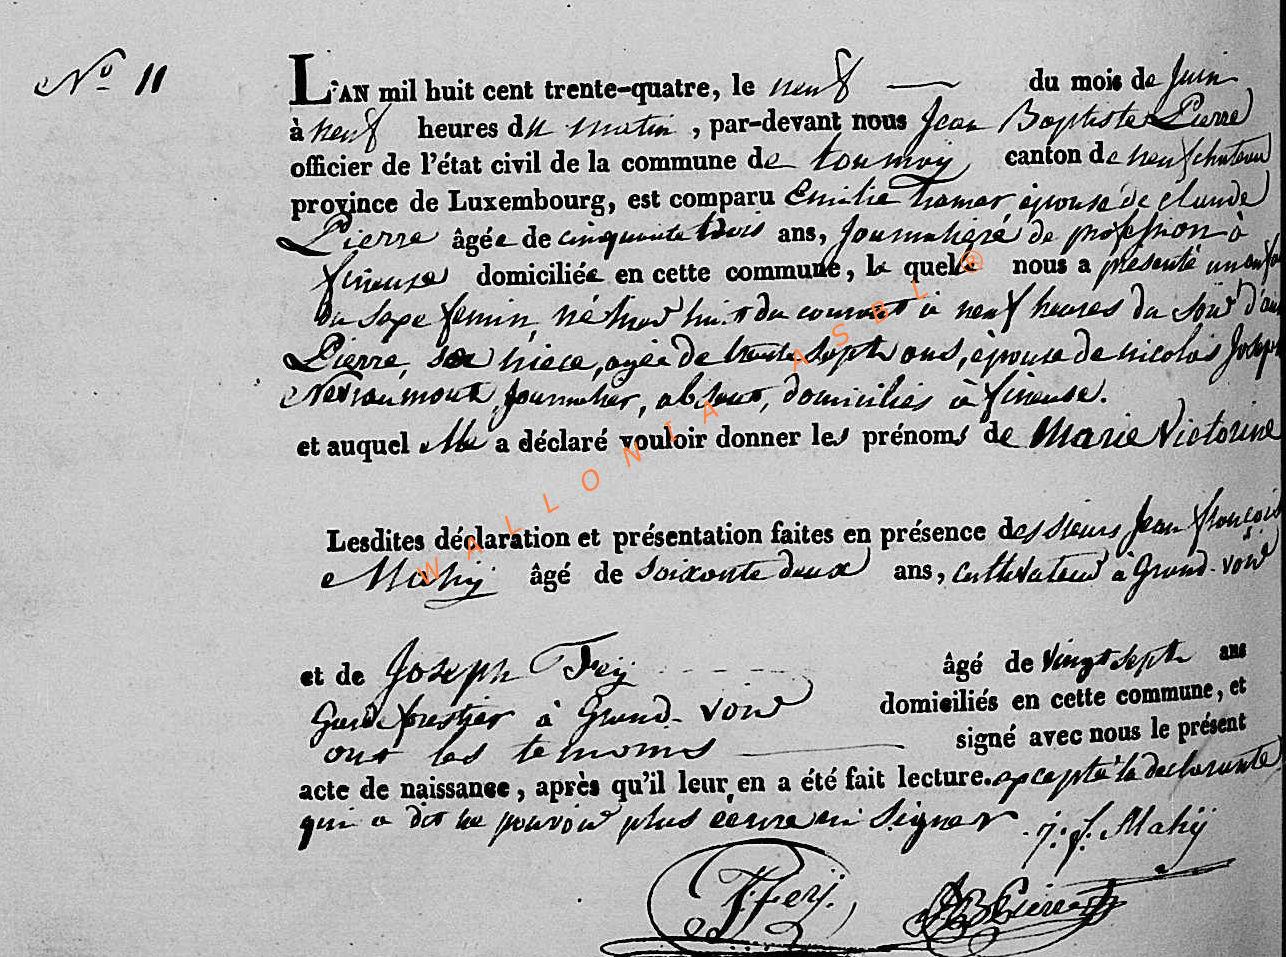 N.º 11
L'AN mil huit cent trente-quatre, le neuf du mois de Juin
à neuf heures du matin, par-devant nous Jean Baptiste Pierre
officier de l'état civil de la commune de tournay canton de neufchateau
province de Luxembourg, est comparu Emilie épouse de claude
Pierre âgée de cinquante trois ans, Journalière de profession à
fineuse domiciliée en cette commune, la quele nous a présenté un enfan
du sexe feminin, né hier huit du courant à neuf heures du soir d'
Pierre, sa niece, agée de trente sept ans, épouse de nicolas Joseph
Nevraumont, Journalier, absent, domiciliés à fineuse.
et auquel elle a déclaré vouloir donner les prénoms de Marie Victorine
Lesdites déclaration et présentation faites en présence des sieurs Jean françois
Mahij âgé de soixante deux ans, cultivateur à Grand-voir
et de Joseph Ferij âgé de vingt sept ans
Garde forestier à Grand-voir domiciliés en cette commune, et
ont les temoins signé avec nous le présent
acte de naissance, après qu'il leur en a été fait lecture. excepté la declarante
qui a dit ne pouvoir plus écrire ni signer. j. f. Mahij
J Ferij. JB Pierre
WALLONIA ASBL ®